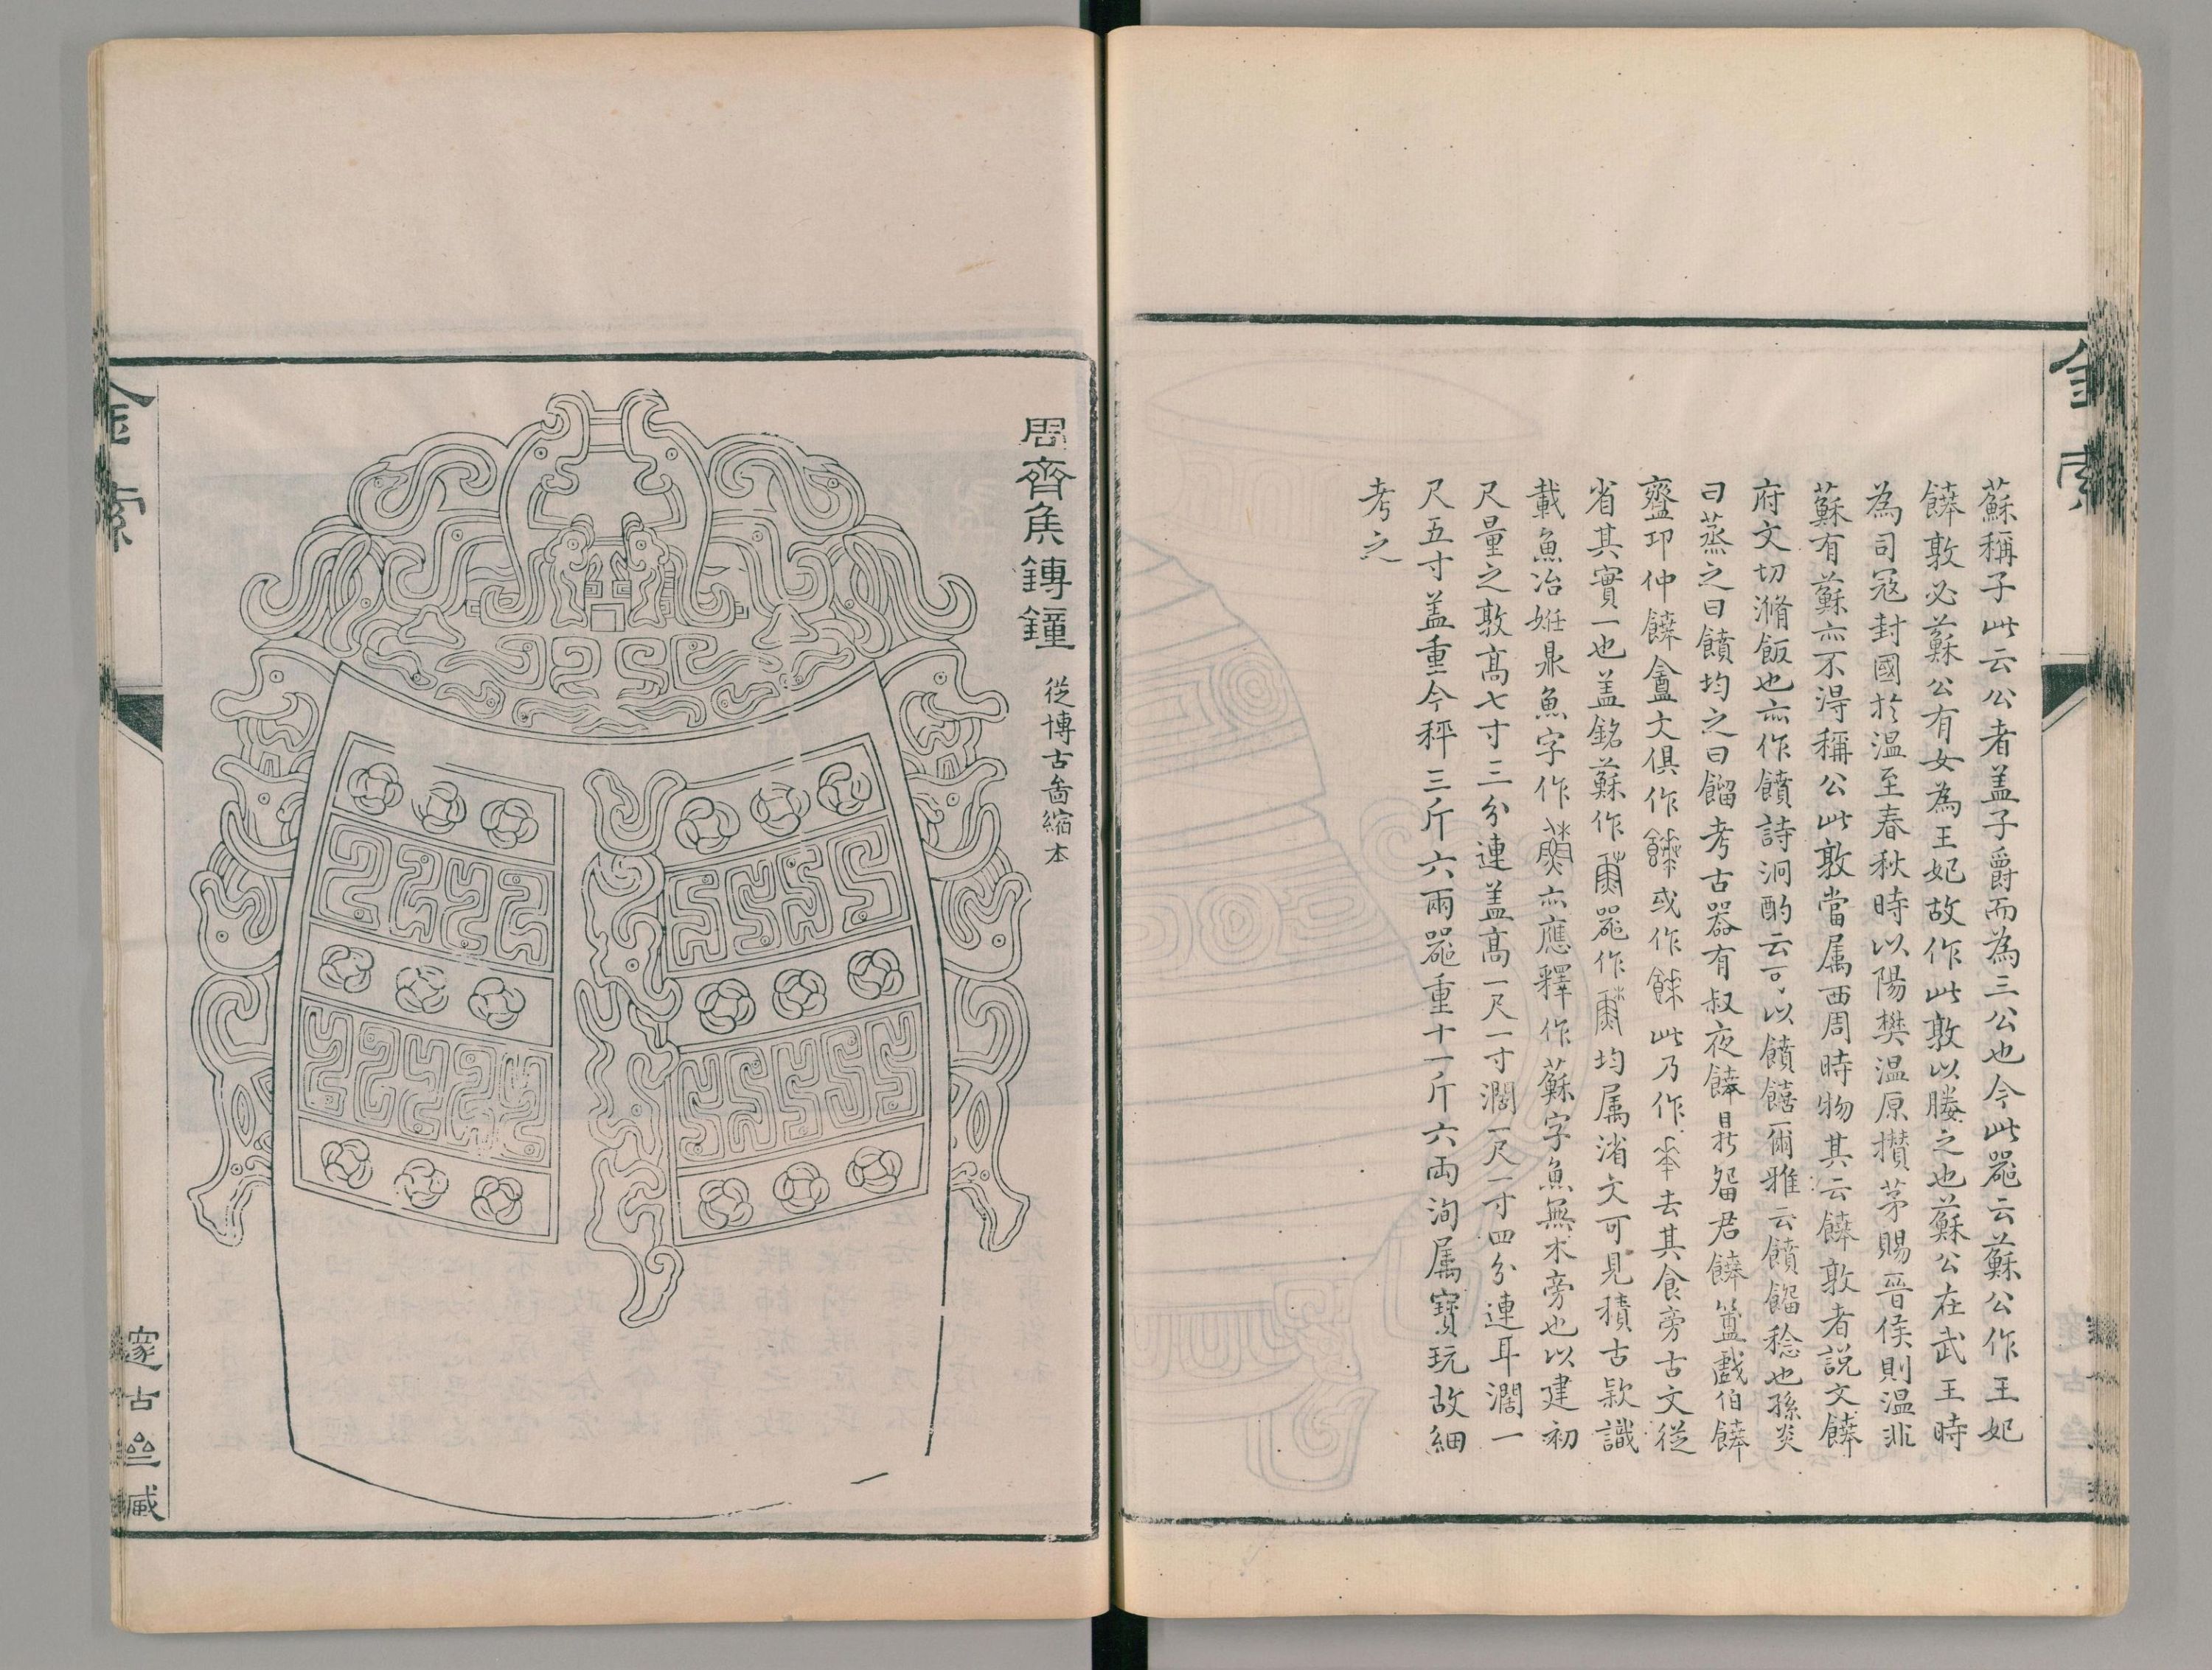 金索
蘇稱子此云公者盖子爵而為三公也今此器云蘇公作王妃
饙敦必蘇公有女為王妃故作此敦以媵之也蘇公在武王時
為司寇封國於温至春秋時以陽樊温原攅茅賜晉侯則温非
蘇有蘇亦不得稱公此敦當属西周時物其云饙敦者説文饙
府文切滫飯也亦作饙詩泂酌云可以饙饎爾雅云饙餾稔也孫炎
曰蒸之曰饙均之曰餾考古器有叔夜饙鼎 君饙簠戲伯饙
盨邛仲饙盦文俱作 或作 此乃作 去其食旁古文從
省其實一也盖銘蘇作 器作 均属渻文可見積古款識
載魚冶妊鼎魚字作 亦應釋作蘇字魚無木旁也以建初
尺量之敦髙七寸三分連盖髙一尺一寸濶一尺一寸四分連耳濶一
尺五寸盖重今秤三斤六兩器重十一斤六両洵属寳玩故細
考之
周齊矦鎛鐘 從博古啚縮本
金索
邃古 藏